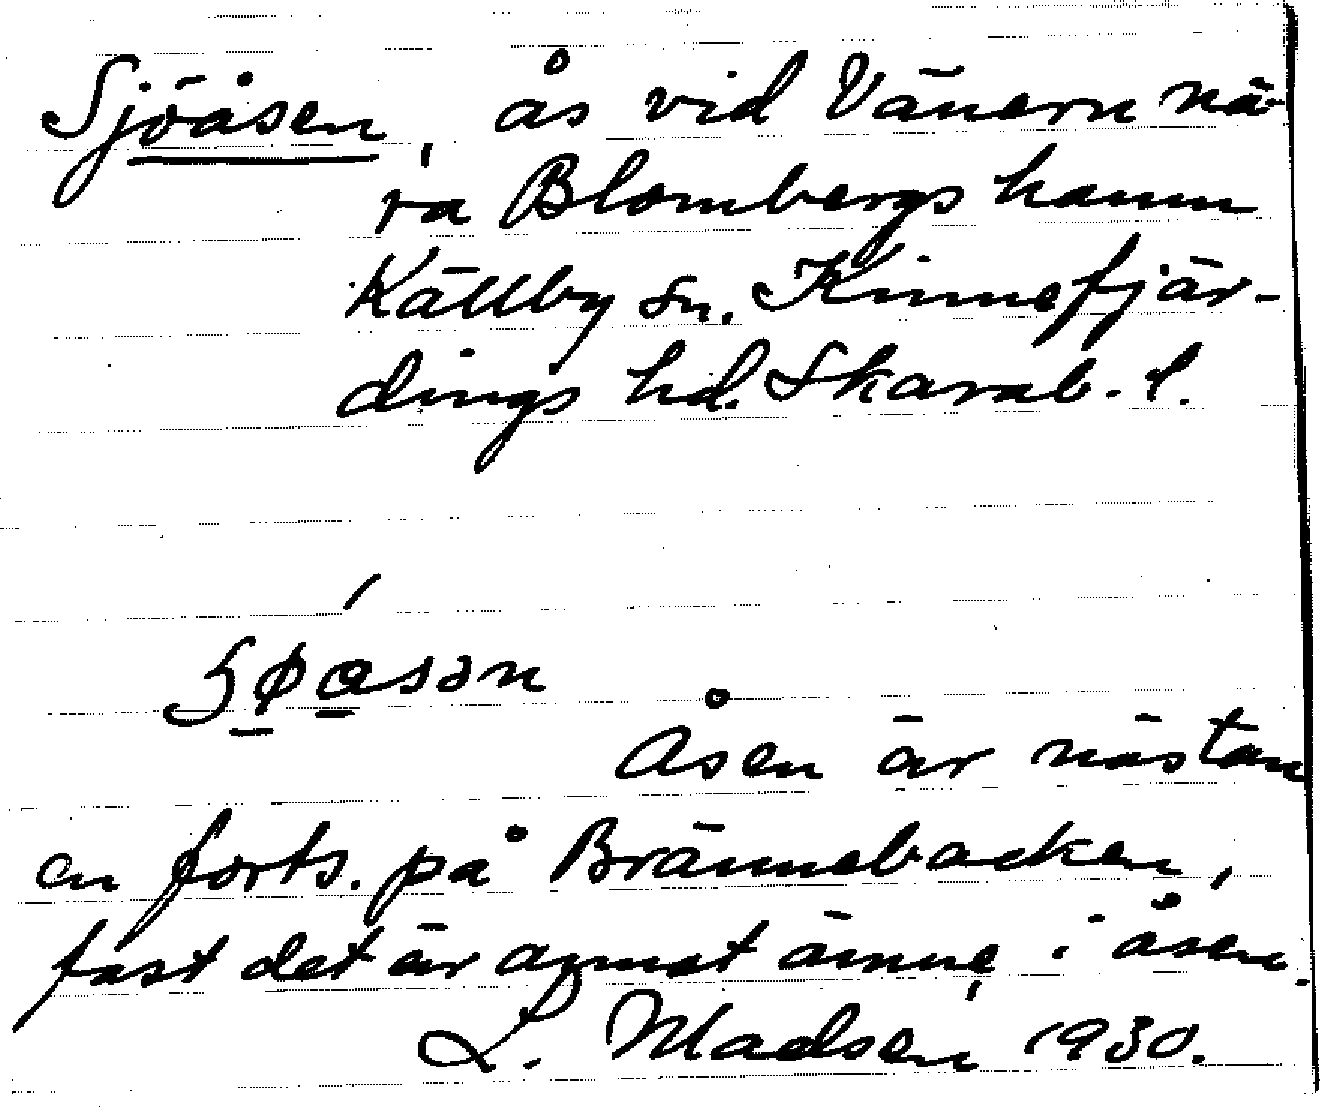 Sjöåsen, ås vid Vänern nä-
ra Blombergs hamn
Källby sn. Kinnefjär-
dings hd. Skarab. l.
Åsen är nästan
en forts. på Brännebacken,
fast det är annat ämne i åsen.
L. Madsen 1930.